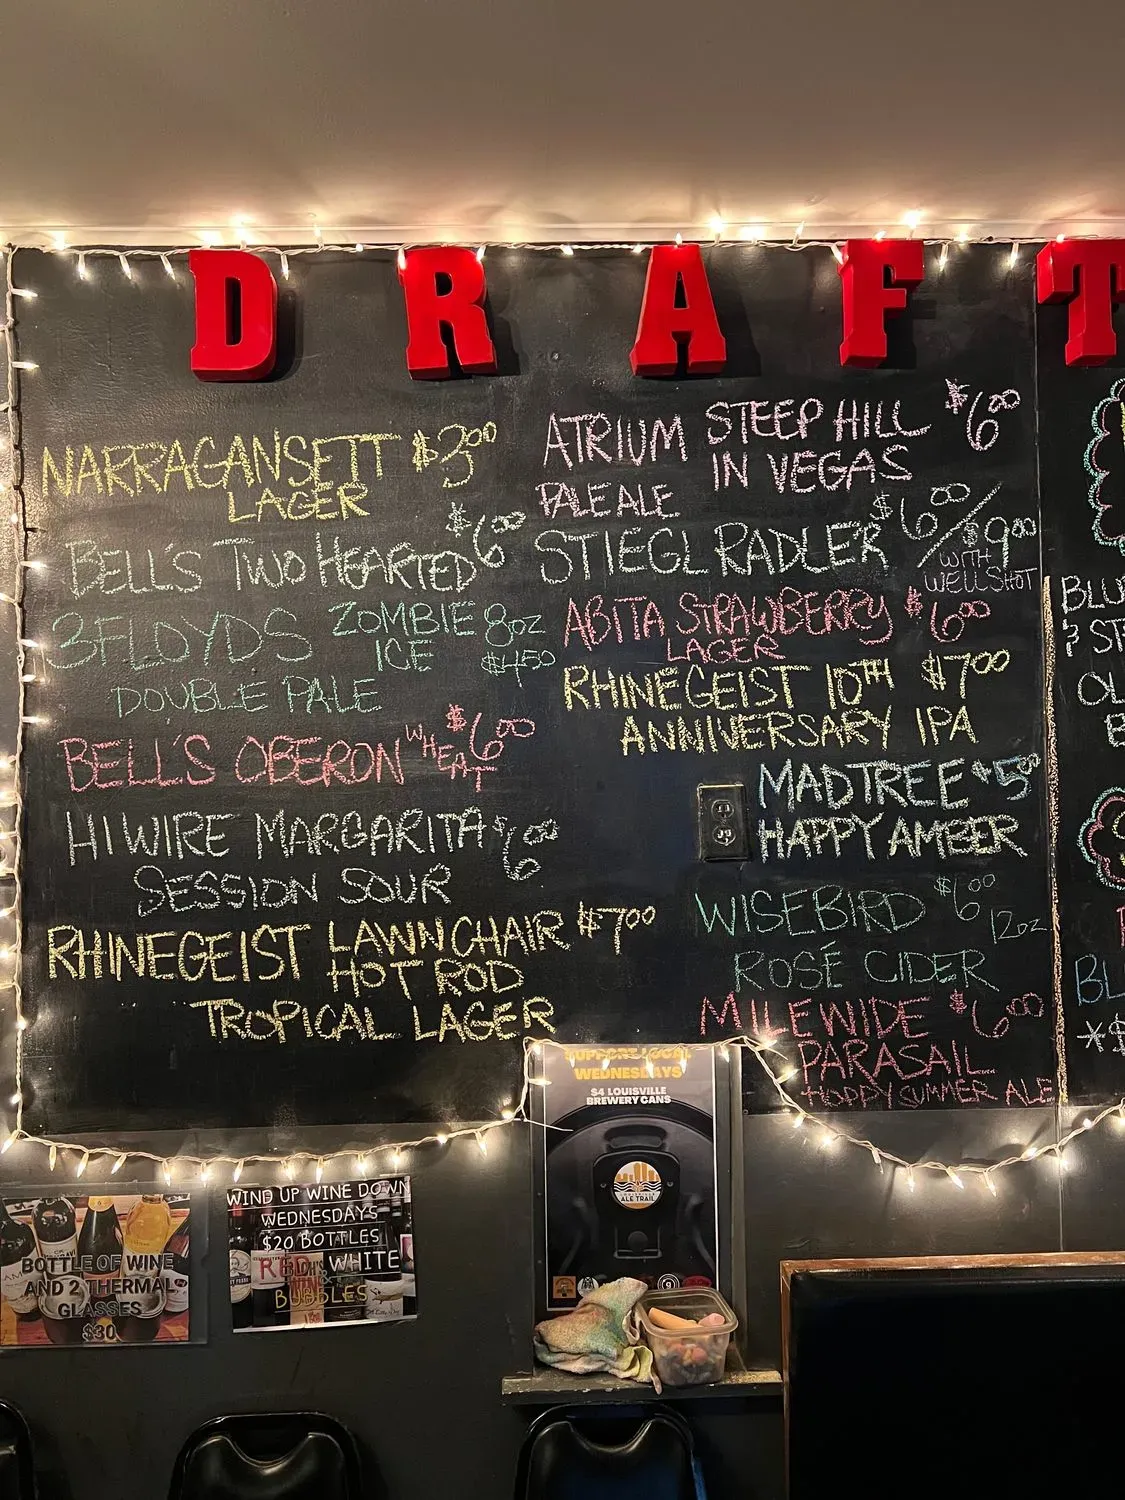 DRAFT
NARRAGANSETT $3.00
LAGER
BELL'S TWO HEARTED $6.00
3FLOYDS ZOMBIE 8oz
ICE $4.50
DOUBLE PALE
BELL'S OBERON WHEAT $6.00
HIWIRE MARGARITA $6.00
SESSION SOUR
RHINEGEIST LAWNCHAIR $7.00
HOT ROD
TROPICAL LAGER
ATRIUM STEEP HILL $6.00
IN VEGAS
PALE ALE
STIEGL RADLER $6.00/$9.00
WITH
WELL SHOT
ABITA STRAWBERRY $6.00
LAGER
RHINEGEIST 10TH $7.00
ANNIVERSARY IPA
MADTREE $5.00
HAPPY AMBER
WISEBIRD $6.00
12oz
ROSÉ CIDER
MILEWIDE $6.00
PARASAIL
HOPPY SUMMER ALE
SUPPORT LOCAL
WEDNESDAYS
$4 LOUISVILLE
BREWERY CANS
ALE TRAIL
BOTTLE OF WINE
AND 2 THERMAL
GLASSES
$30
WIND UP WINE DOWN
WEDNESDAYS
$20 BOTTLES
RED WHITE
BUBBLES